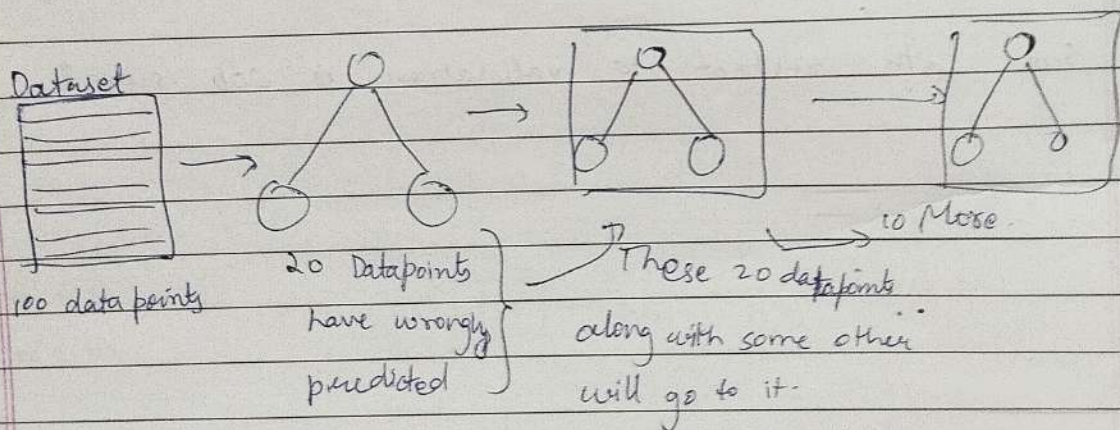 Dataset
100 data points
20 Datapoints
have wrongly
predicted
These 20 datapoints
along with some other
will go to it.
10 More.